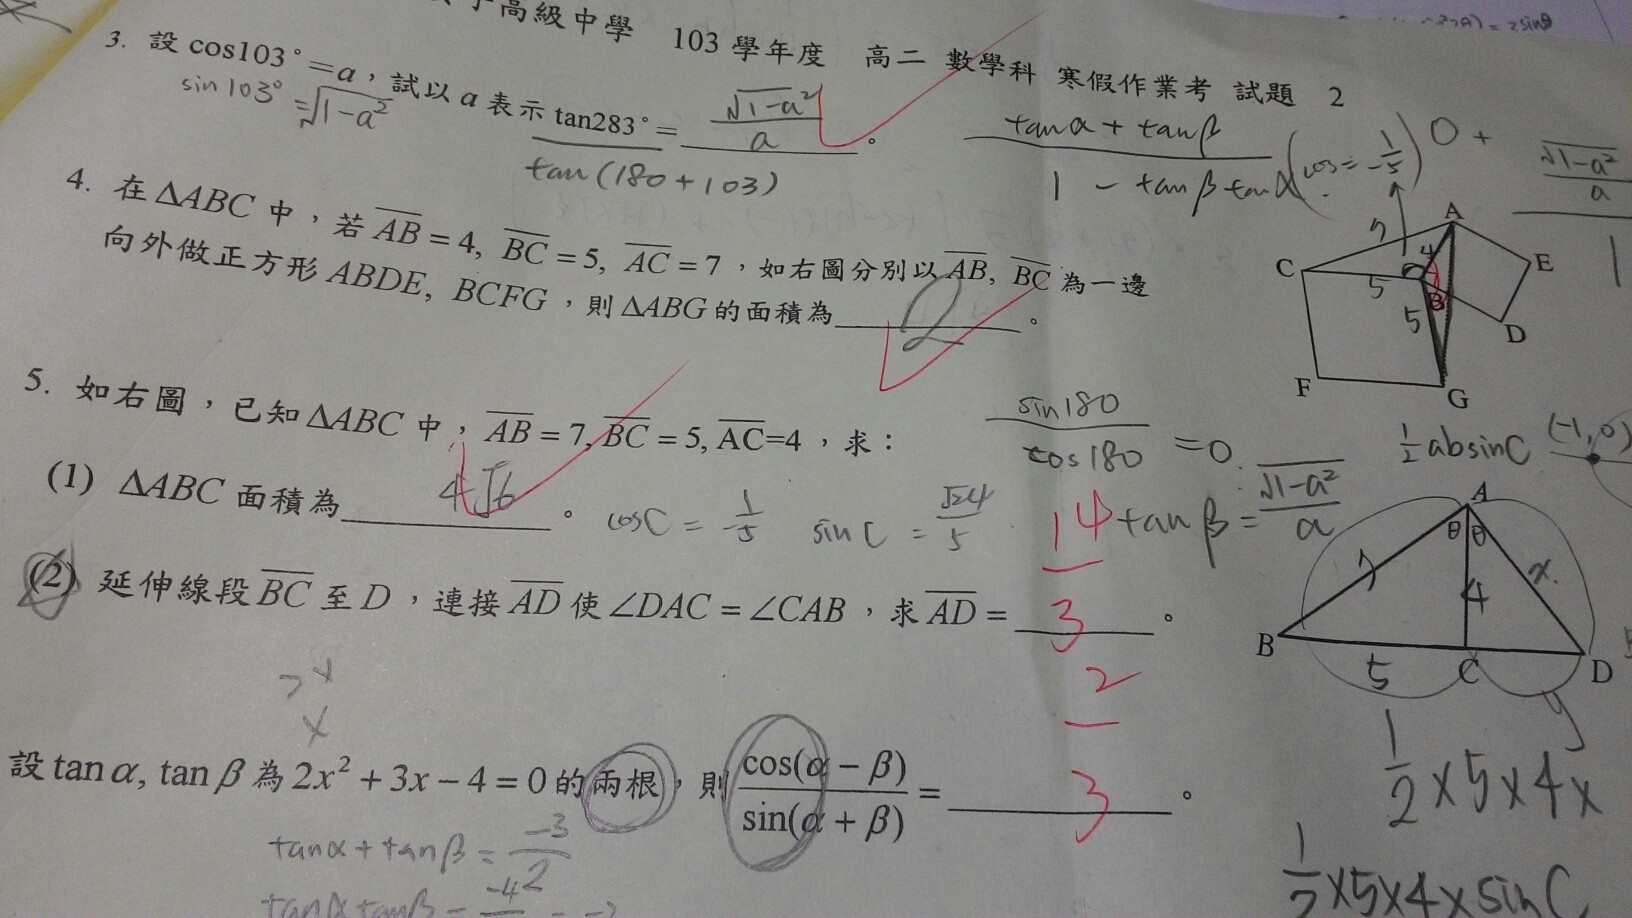 子高級中學 103 學年度 高二 數學科 寒假作業考 試題 2
3. 設 cos103° = a，試以 a 表示 tan283° = √(1-a²)/a 。
sin 103° = √(1-a²)
tan(180+103)
(tanα + tanβ)/(1 - tanβ tanα)
(cos = -1/5)
0 + √(1-a²)/a
1
4. 在 ΔABC 中，若 AB = 4, BC = 5, AC = 7，如右圖分別以 AB, BC 為一邊
向外做正方形 ABDE, BCFG，則 ΔABG 的面積為 2 。
A
7
4
C
E
5
B
5
D
F
G
5. 如右圖，已知 ΔABC 中，AB = 7, BC = 5, AC=4，求：
sin180/cos180 = 0
½absinC
(-1,0)
(1) ΔABC 面積為 4√6 。
cosC = -1/5
sinC = √24/5
tanβ = √(1-a²)/a
(2) 延伸線段 BC 至 D，連接 AD 使 ∠DAC = ∠CAB，求 AD = 。
14/3
A
θ θ
7
4
x
B
5
C
D
y
7x
x
設 tan α, tan β 為 2x² + 3x − 4 = 0 的兩根，則 cos(α − β)/sin(α + β) = 。
2/3
tanα + tanβ = -3/2
tanα tanβ = -4/2 = -2
½×5×4×
½×5×4×sinC